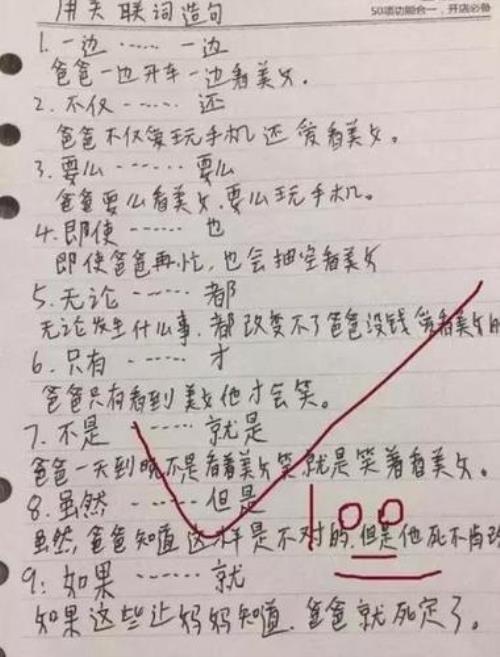 用关联词造句
50项功能合一，开店必备
1. 一边 ······ 一边
爸爸一边开车一边看美女.
2. 不仅 ······ 还
爸爸不仅爱玩手机还爱看美女。
3. 要么 ······ 要么
爸爸要么看美女.要么玩手机。
4. 即使 ······ 也
即使爸爸再忙，也会抽空看美女
5. 无论 ······ 都
无论发生什么事.都改变不了爸爸没钱爱看美女的
6. 只有 ······ 才
爸爸只有看到美女他才会笑。
7. 不是 ······ 就是
爸爸一天到晚不是看着美女笑就是笑着看美女。
8. 虽然 ······ 但是
虽然,爸爸知道这样是不对的,但是他死不肯改
100
9: 如果 ······ 就
如果这些让妈妈知道.爸爸就死定了。